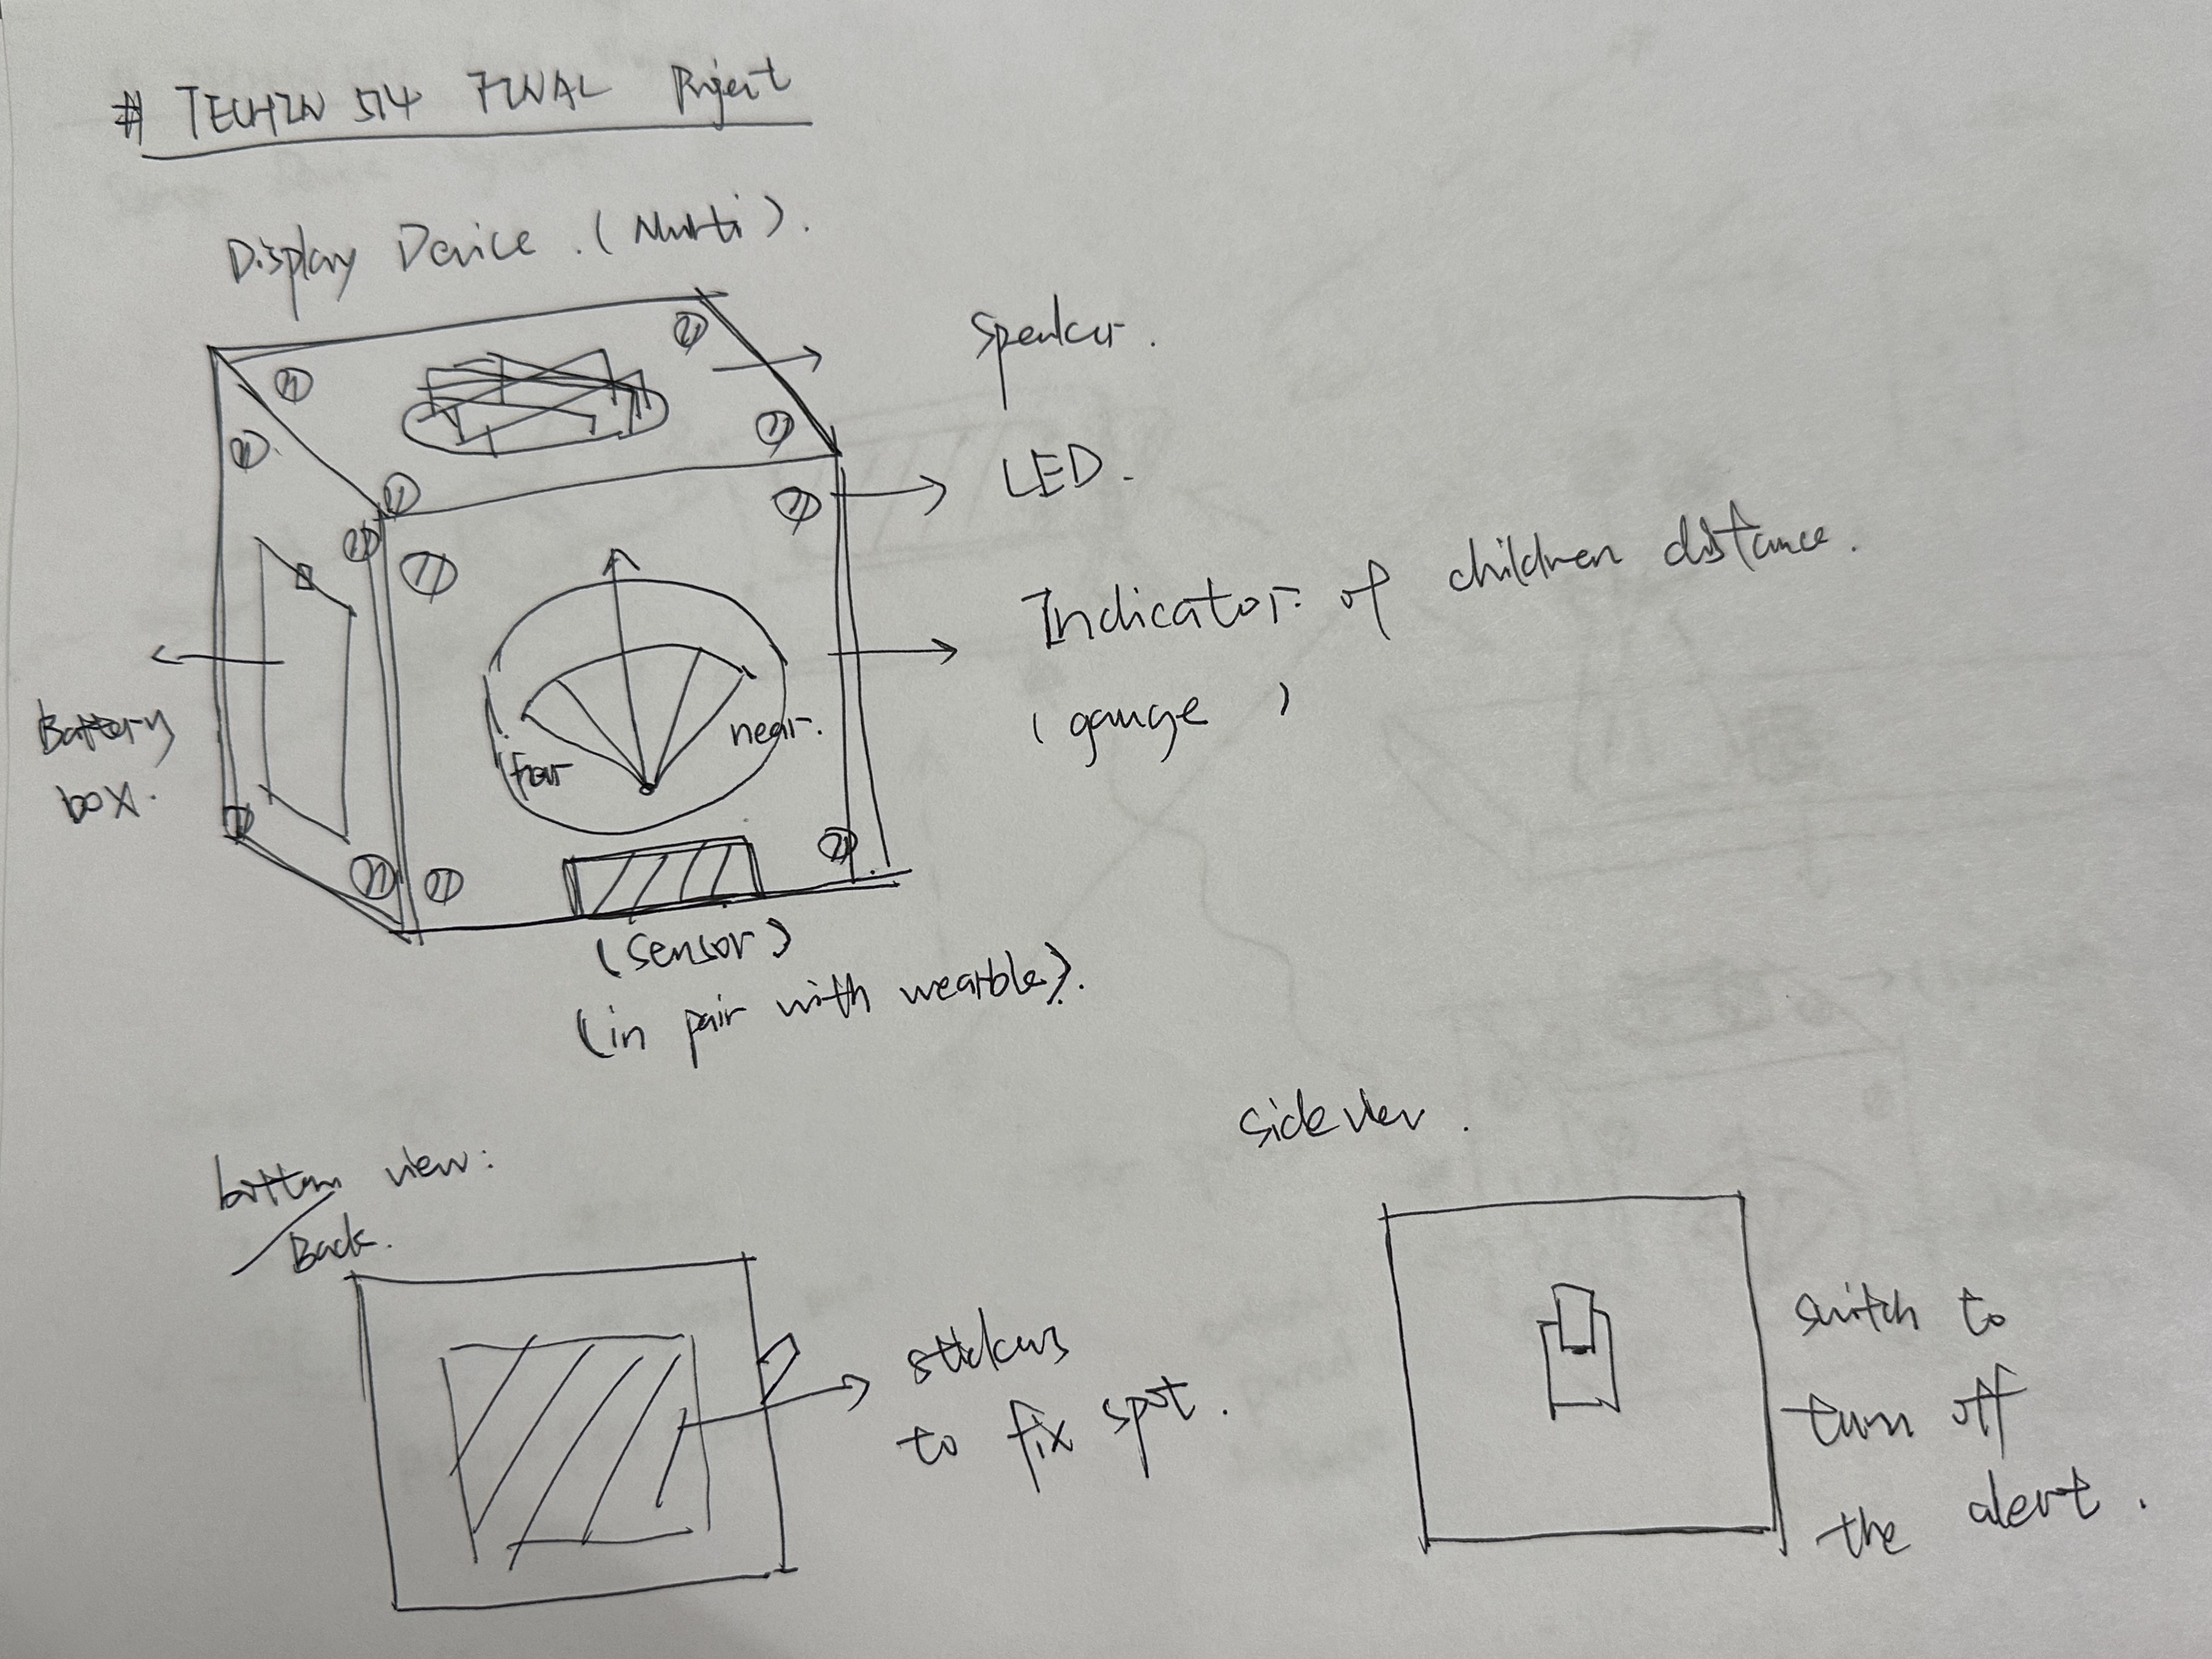 # TECHIN 514 FINAL Project
Display Device. (Multi).
Speaker.
LED.
Indicator of children distance.
(gauge)
Battery
box.
far
near.
(sensor)
(in pair with wearble).
bottom view:
Back.
stickers
to fix spot.
side view.
switch to
turn off
the alert.